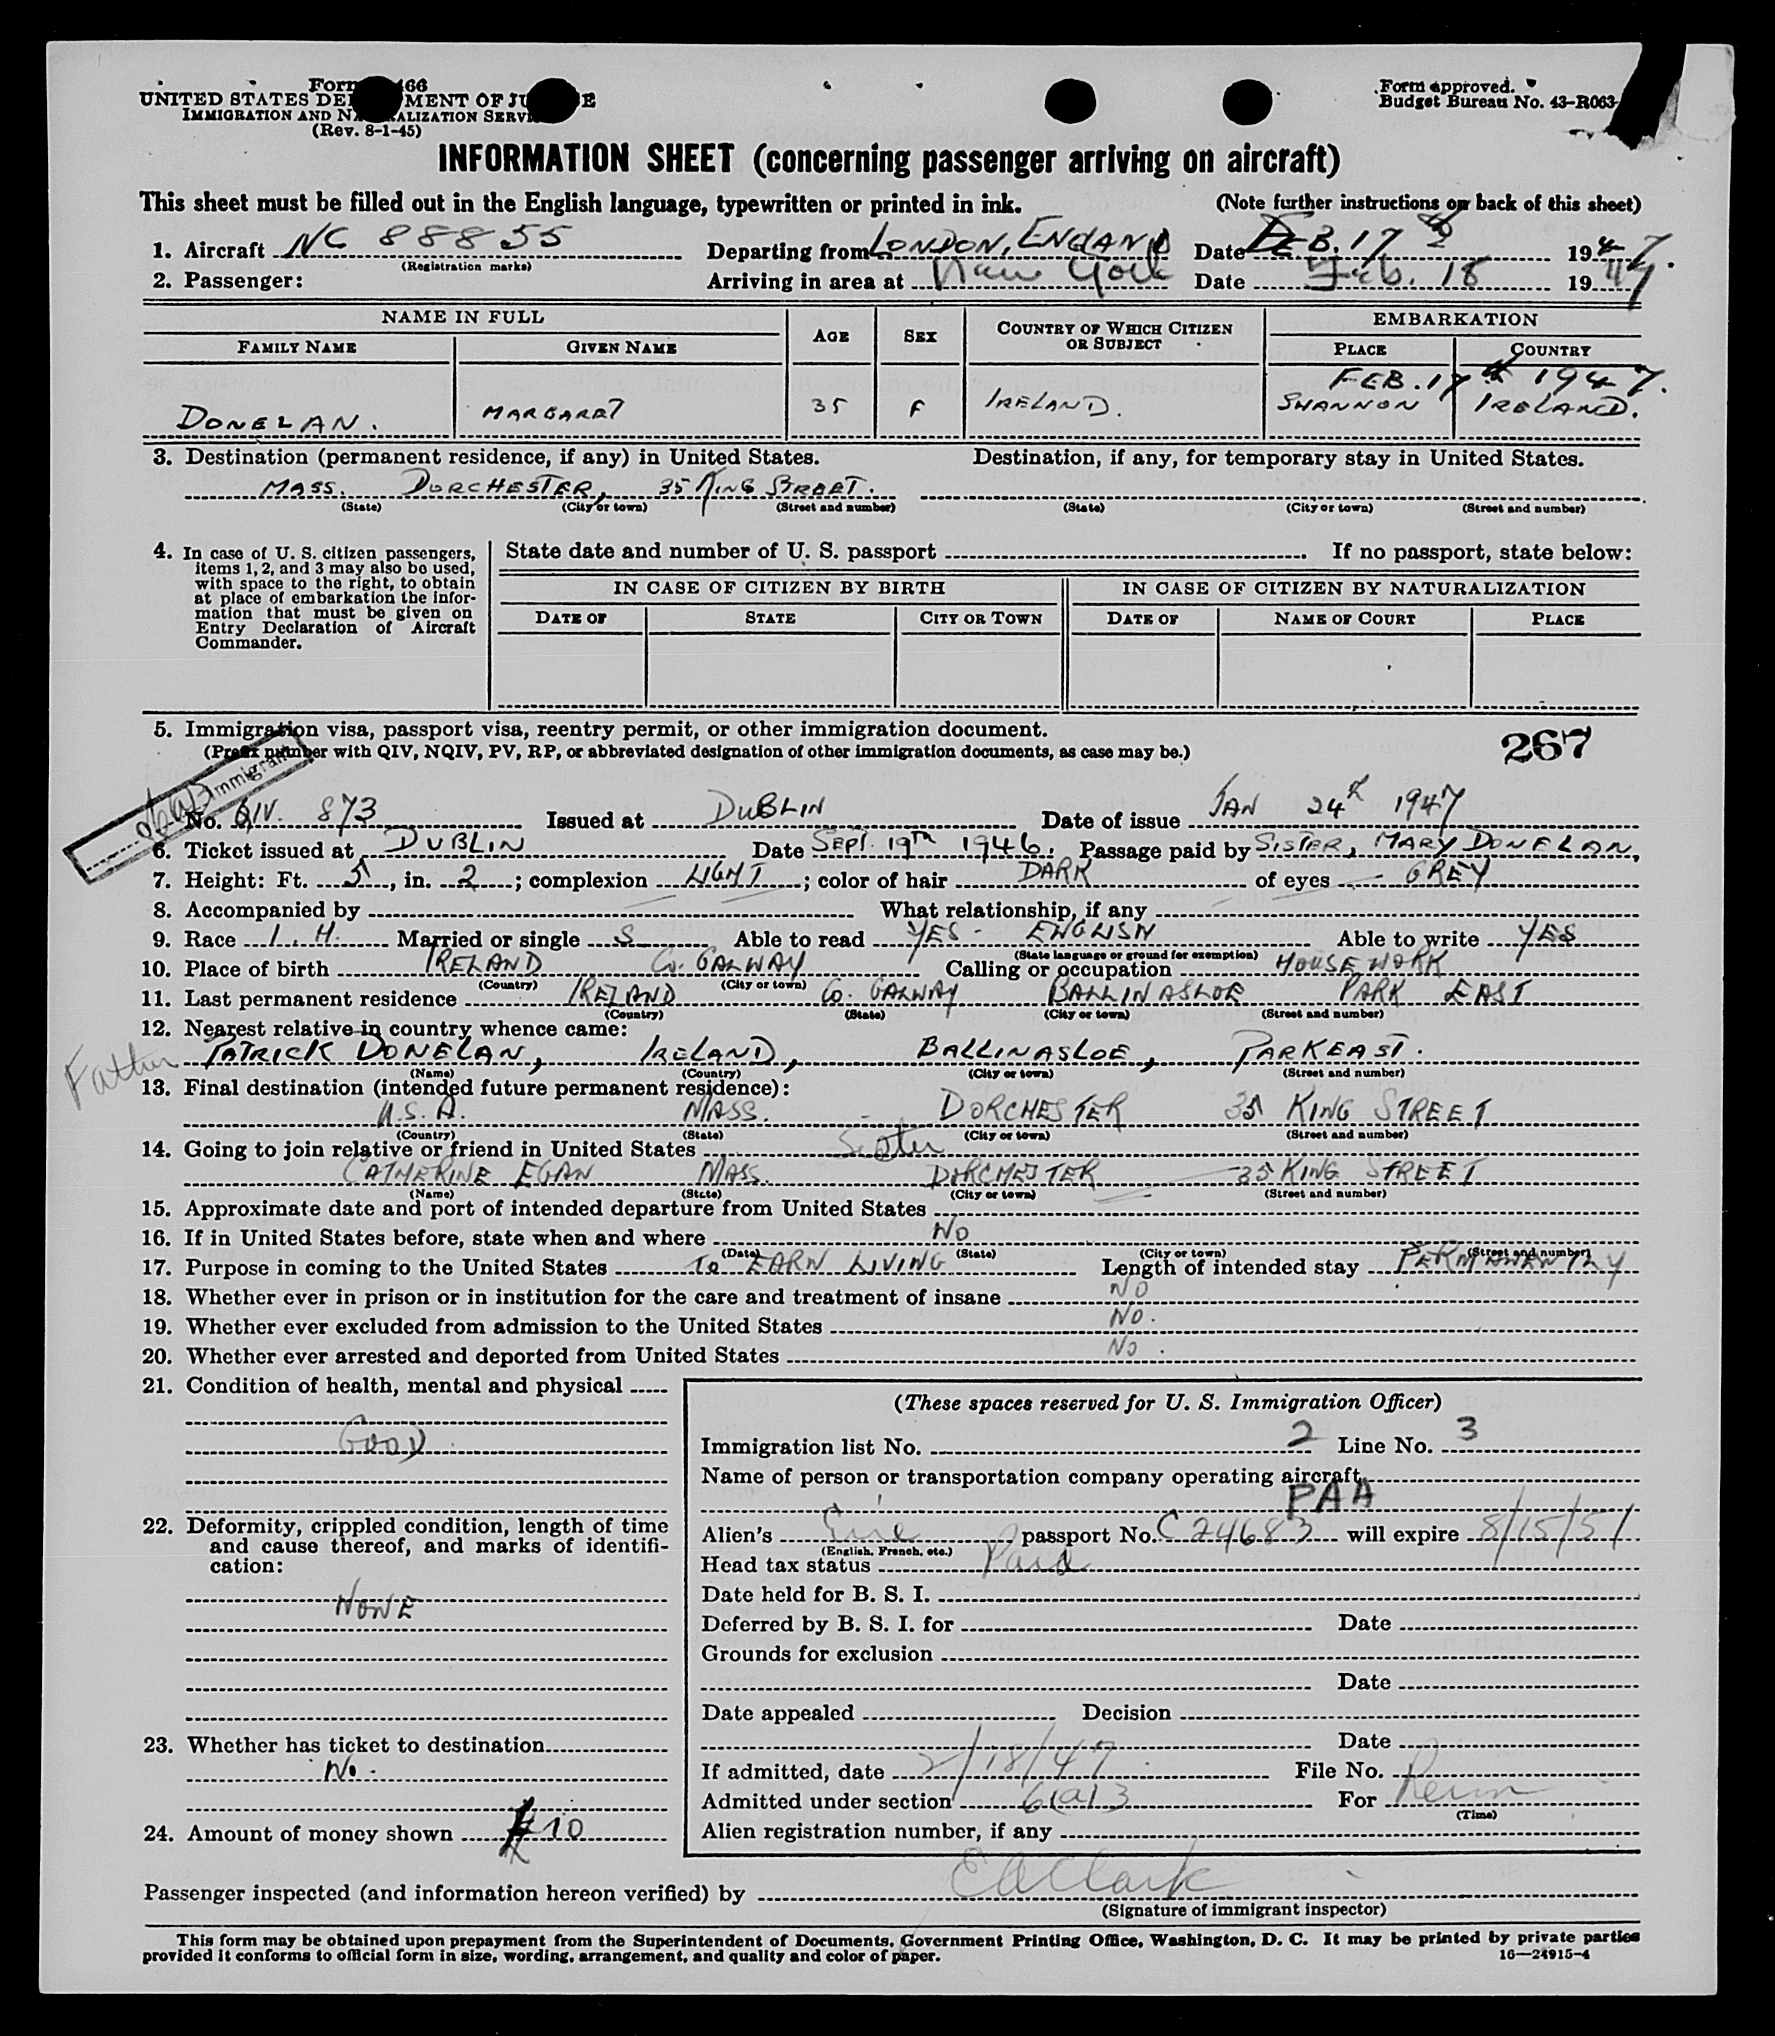 Form 466
UNITED STATES DEPARTMENT OF JUSTICE
IMMIGRATION AND NATURALIZATION SERVICE
(Rev. 8-1-45)
Form approved.
Budget Bureau No. 43-R063-
INFORMATION SHEET (concerning passenger arriving on aircraft)
This sheet must be filled out in the English language, typewritten or printed in ink. (Note further instructions on back of this sheet)
1. Aircraft NC 88855 Departing from LONDON, ENGLAND Date FEB. 17 1947.
(Registration marks)
2. Passenger: Arriving in area at New York Date Feb. 18 1947
NAME IN FULL AGE SEX COUNTRY OF WHICH CITIZEN OR SUBJECT EMBARKATION
FAMILY NAME GIVEN NAME PLACE COUNTRY
FEB. 17 1947.
DONELAN. MARGARET 35 F IRELAND. SHANNON IRELAND.
3. Destination (permanent residence, if any) in United States. Destination, if any, for temporary stay in United States.
MASS. DORCHESTER, 35 KING STREET.
(State) (City or town) (Street and number) (State) (City or town) (Street and number)
4. In case of U. S. citizen passengers, items 1, 2, and 3 may also be used, with space to the right, to obtain at place of embarkation the information that must be given on Entry Declaration of Aircraft Commander.
State date and number of U. S. passport If no passport, state below:
IN CASE OF CITIZEN BY BIRTH IN CASE OF CITIZEN BY NATURALIZATION
DATE OF STATE CITY OR TOWN DATE OF NAME OF COURT PLACE
5. Immigration visa, passport visa, reentry permit, or other immigration document.
(Prefix number with QIV, NQIV, PV, RP, or abbreviated designation of other immigration documents, as case may be.)
267
Immigrant
No. QIV. 873 Issued at DUBLIN Date of issue JAN 24th 1947
6. Ticket issued at DUBLIN Date SEPT. 19TH 1946. Passage paid by SISTER, MARY DONELAN,
7. Height: Ft. 5, in. 2; complexion LIGHT; color of hair DARK of eyes GREY
8. Accompanied by What relationship, if any
9. Race I. H. Married or single S Able to read YES - ENGLISH Able to write YES
(State language or ground for exemption)
10. Place of birth IRELAND Co. GALWAY Calling or occupation HOUSE WORK
(Country) (City or town)
11. Last permanent residence IRELAND Co. GALWAY BALLINASLOE PARK EAST
(Country) (State) (City or town) (Street and number)
12. Nearest relative in country whence came:
Father PATRICK DONELAN, IRELAND, BALLINASLOE, PARKEAST.
(Name) (Country) (City or town) (Street and number)
13. Final destination (intended future permanent residence):
U.S.A. MASS. DORCHESTER 35 KING STREET
(Country) (State) (City or town) (Street and number)
14. Going to join relative or friend in United States Sister
CATHERINE EGAN MASS. DORCHESTER 35 KING STREET
(Name) (State) (City or town) (Street and number)
15. Approximate date and port of intended departure from United States
16. If in United States before, state when and where NO
(Date) (State) (City or town) (Street and number)
17. Purpose in coming to the United States TO EARN LIVING Length of intended stay PERMANENTLY
18. Whether ever in prison or in institution for the care and treatment of insane NO
19. Whether ever excluded from admission to the United States NO.
20. Whether ever arrested and deported from United States NO.
21. Condition of health, mental and physical
GOOD
22. Deformity, crippled condition, length of time and cause thereof, and marks of identification:
NONE
23. Whether has ticket to destination
No.
24. Amount of money shown 10
(These spaces reserved for U. S. Immigration Officer)
Immigration list No. 2 Line No. 3
Name of person or transportation company operating aircraft
PAA
Alien's Eire passport No. C 24683 will expire 8/15/51
(English, French, etc.)
Head tax status Paid
Date held for B. S. I.
Deferred by B. S. I. for Date
Grounds for exclusion
Date
Date appealed Decision
Date
If admitted, date 2/18/47 File No.
Admitted under section 6(a)3 For Perm
(Time)
Alien registration number, if any
Passenger inspected (and information hereon verified) by E A Clark
(Signature of immigrant inspector)
This form may be obtained upon prepayment from the Superintendent of Documents, Government Printing Office, Washington, D. C. It may be printed by private parties
provided it conforms to official form in size, wording, arrangement, and quality and color of paper. 16—24915-4